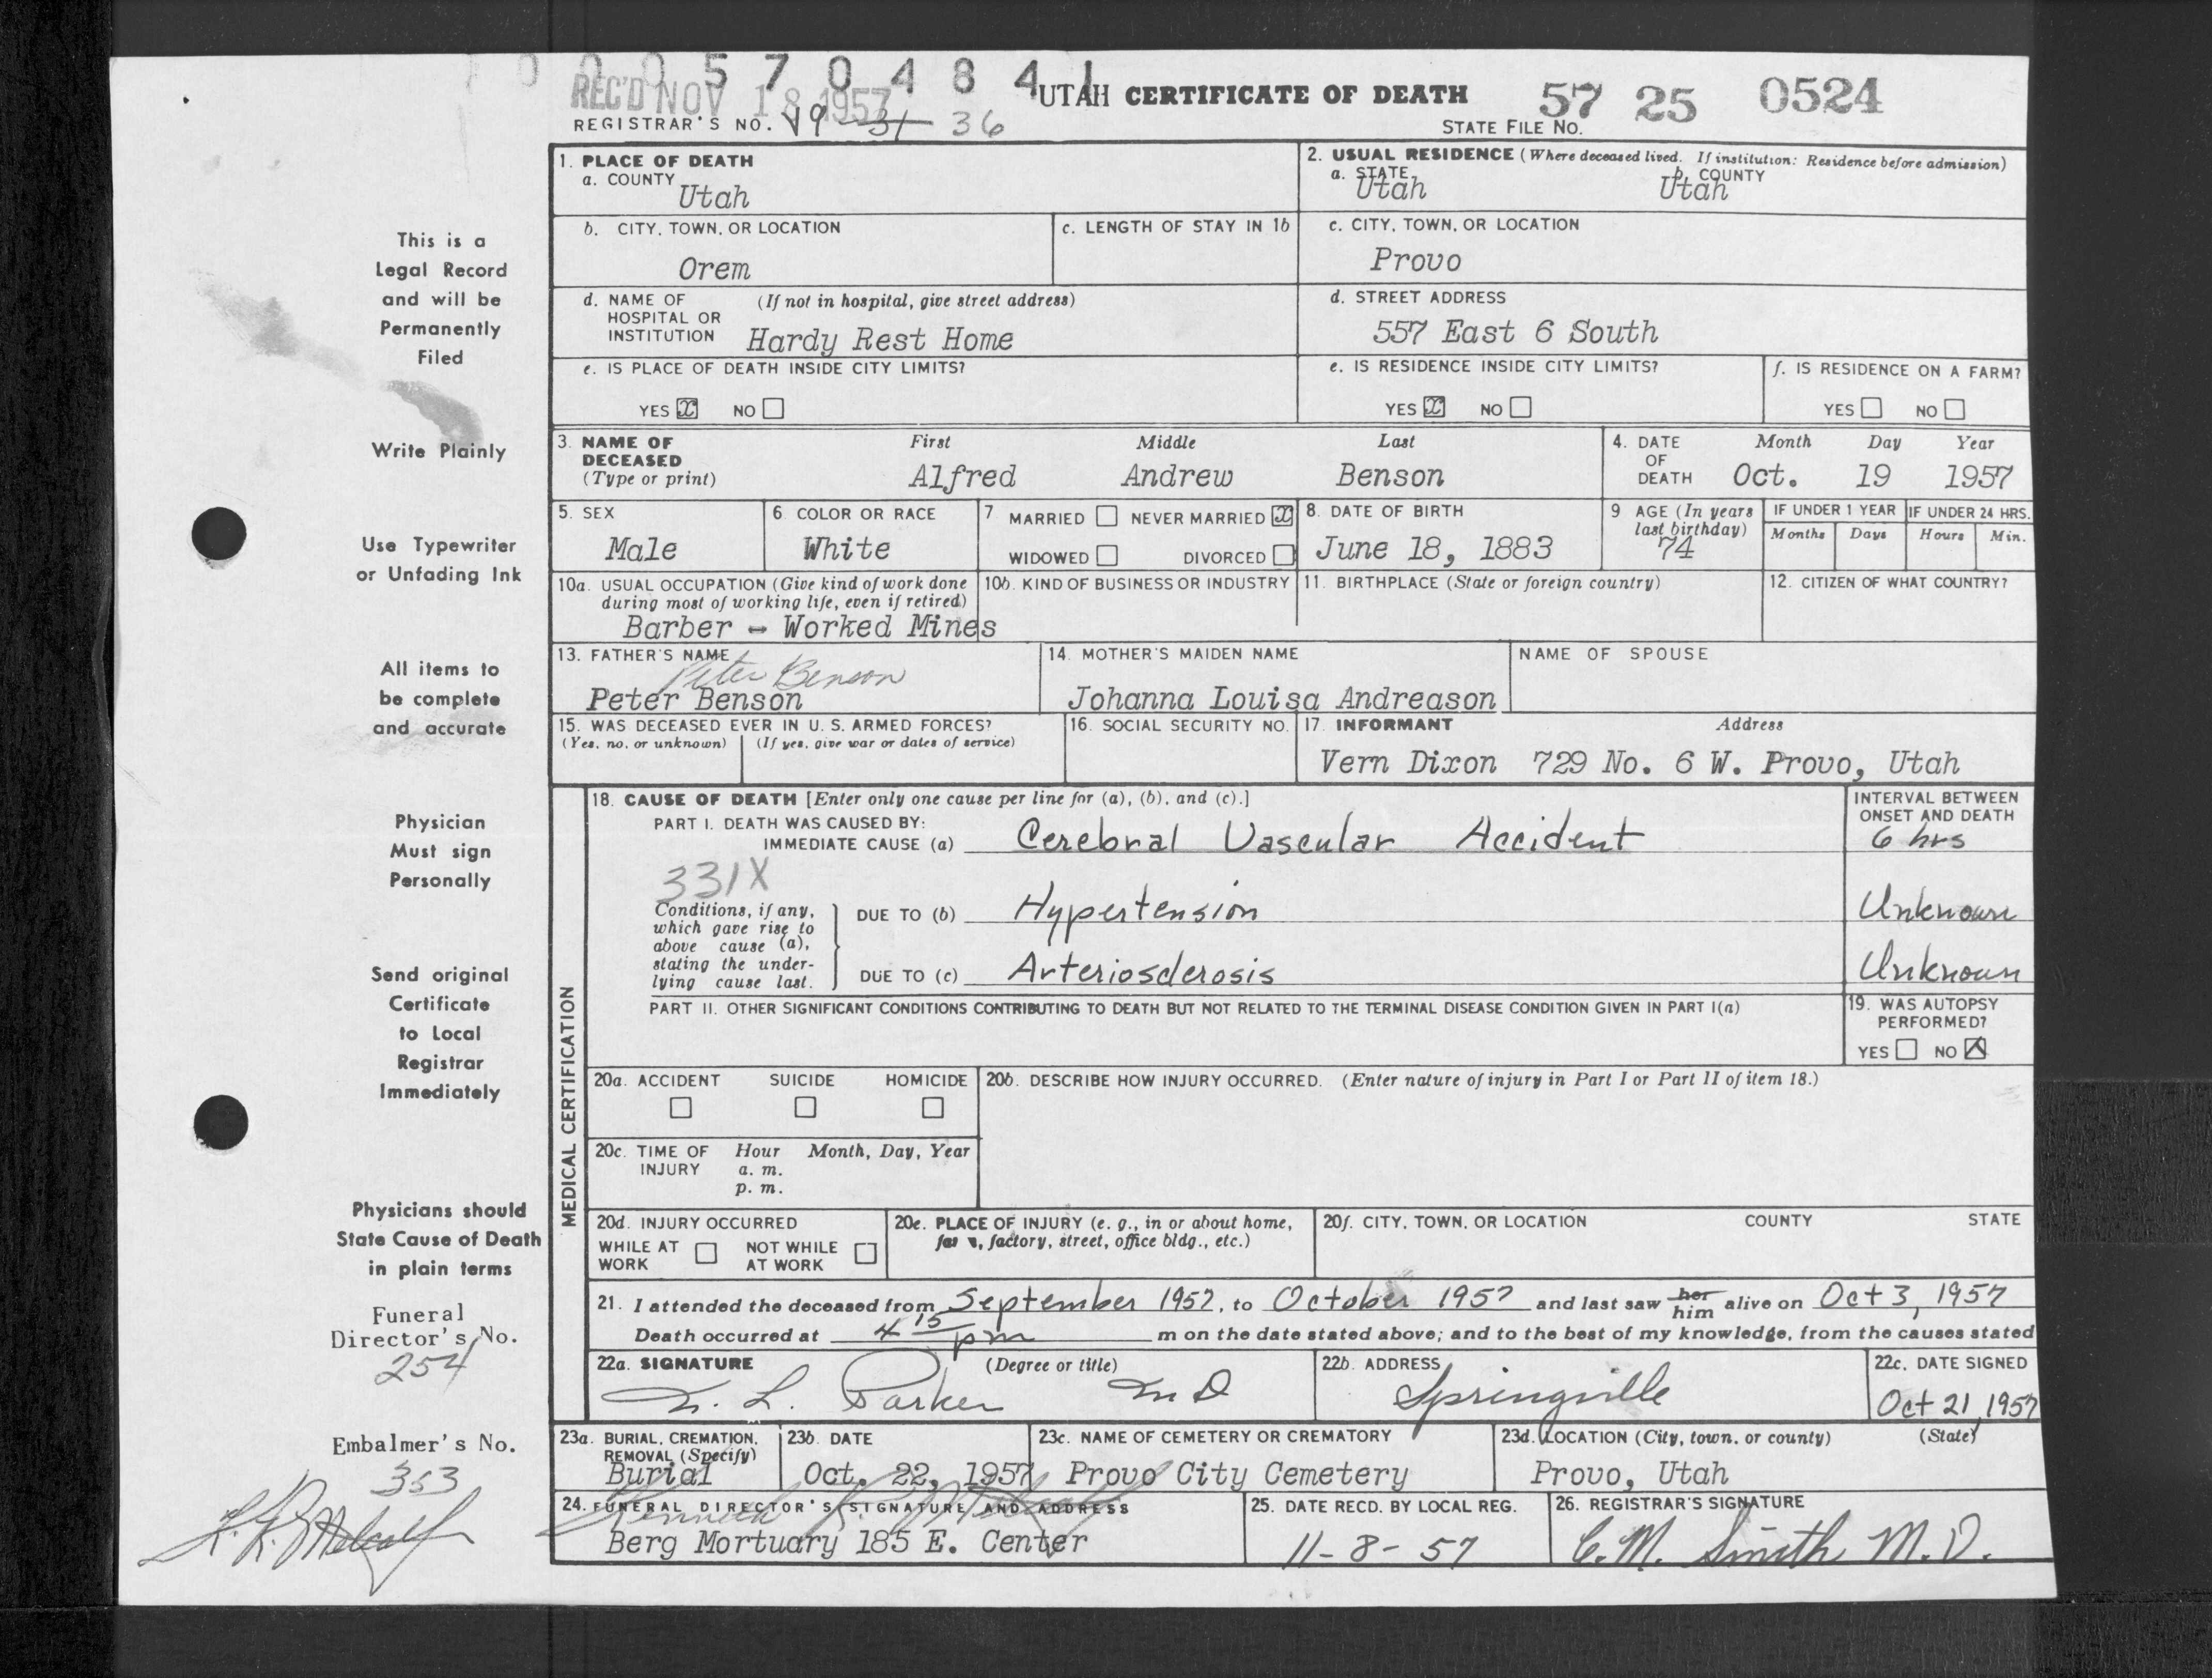 0 0 0 5 7 0 4 8 4 1
REC'D NOV 18 1957
UTAH CERTIFICATE OF DEATH
57 25 0524
REGISTRAR'S NO. 19 31 36
STATE FILE NO.
1. PLACE OF DEATH
a. COUNTY
Utah
2. USUAL RESIDENCE (Where deceased lived. If institution: Residence before admission)
a. STATE b. COUNTY
Utah Utah
b. CITY, TOWN, OR LOCATION
Orem
c. LENGTH OF STAY IN 1b
c. CITY, TOWN, OR LOCATION
Provo
d. NAME OF HOSPITAL OR INSTITUTION (If not in hospital, give street address)
Hardy Rest Home
d. STREET ADDRESS
557 East 6 South
e. IS PLACE OF DEATH INSIDE CITY LIMITS?
YES x NO
e. IS RESIDENCE INSIDE CITY LIMITS?
YES x NO
f. IS RESIDENCE ON A FARM?
YES NO
3. NAME OF DECEASED (Type or print)
First Middle Last
Alfred Andrew Benson
4. DATE OF DEATH
Month Day Year
Oct. 19 1957
5. SEX
Male
6. COLOR OR RACE
White
7 MARRIED NEVER MARRIED x
WIDOWED DIVORCED
8. DATE OF BIRTH
June 18, 1883
9 AGE (In years last birthday)
74
IF UNDER 1 YEAR
Months Days
IF UNDER 24 HRS.
Hours Min.
10a. USUAL OCCUPATION (Give kind of work done
during most of working life, even if retired)
Barber - Worked Mines
10b. KIND OF BUSINESS OR INDUSTRY
11. BIRTHPLACE (State or foreign country)
12. CITIZEN OF WHAT COUNTRY?
13. FATHER'S NAME
Peter Benson
Peter Benson
14. MOTHER'S MAIDEN NAME
Johanna Louisa Andreason
NAME OF SPOUSE
15. WAS DECEASED EVER IN U. S. ARMED FORCES?
(Yes, no, or unknown) (If yes, give war or dates of service)
16. SOCIAL SECURITY NO.
17. INFORMANT Address
Vern Dixon 729 No. 6 W. Provo, Utah
MEDICAL CERTIFICATION
18. CAUSE OF DEATH [Enter only one cause per line for (a), (b), and (c).]
INTERVAL BETWEEN
ONSET AND DEATH
PART I. DEATH WAS CAUSED BY:
IMMEDIATE CAUSE (a) Cerebral Vascular Accident 6 hrs
331X
Conditions, if any,
which gave rise to
above cause (a),
stating the under-
lying cause last.
DUE TO (b) Hypertension Unknown
DUE TO (c) Arteriosclerosis Unknown
PART II. OTHER SIGNIFICANT CONDITIONS CONTRIBUTING TO DEATH BUT NOT RELATED TO THE TERMINAL DISEASE CONDITION GIVEN IN PART I(a)
19. WAS AUTOPSY
PERFORMED?
YES NO X
20a. ACCIDENT SUICIDE HOMICIDE
20b. DESCRIBE HOW INJURY OCCURRED. (Enter nature of injury in Part I or Part II of item 18.)
20c. TIME OF INJURY
Hour Month, Day, Year
a. m.
p. m.
20d. INJURY OCCURRED
WHILE AT WORK NOT WHILE AT WORK
20e. PLACE OF INJURY (e. g., in or about home,
factory, street, office bldg., etc.)
20f. CITY, TOWN, OR LOCATION COUNTY STATE
21. I attended the deceased from September 1957, to October 1957 and last saw her him alive on Oct 3, 1957
Death occurred at 4 15 pm m on the date stated above; and to the best of my knowledge, from the causes stated
22a. SIGNATURE (Degree or title)
L. Parker M D
22b. ADDRESS
Springville
22c. DATE SIGNED
Oct 21, 1957
23a. BURIAL, CREMATION,
REMOVAL (Specify)
Burial
23b. DATE
Oct. 22, 1957
23c. NAME OF CEMETERY OR CREMATORY
Provo City Cemetery
23d. LOCATION (City, town, or county) (State)
Provo, Utah
24. FUNERAL DIRECTOR'S SIGNATURE AND ADDRESS
Kenneth R. Metcalf
Berg Mortuary 185 E. Center
25. DATE RECD. BY LOCAL REG.
11-8-57
26. REGISTRAR'S SIGNATURE
C. M. Smith M.D.
This is a
Legal Record
and will be
Permanently
Filed
Write Plainly
Use Typewriter
or Unfading Ink
All items to
be complete
and accurate
Physician
Must sign
Personally
Send original
Certificate
to Local
Registrar
Immediately
Physicians should
State Cause of Death
in plain terms
Funeral
Director's No.
254
Embalmer's No.
353
Metcalf